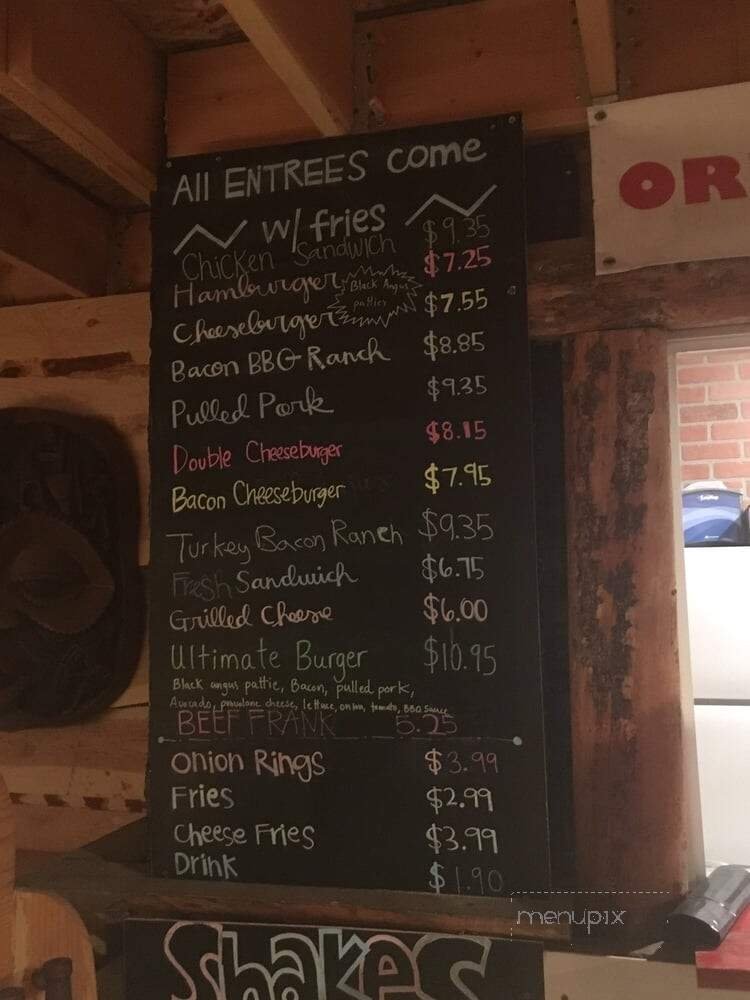 All ENTREES come
w/ fries
Chicken Sandwich $9.35
Hamburger $7.25
Black Angus
patties
Cheeseburger $7.55
Bacon BBQ Ranch $8.85
Pulled Pork $9.35
Double Cheeseburger $8.15
Bacon Cheeseburger $7.95
Turkey Bacon Ranch $9.35
Fresh Sandwich $6.75
Grilled Cheese $6.00
Ultimate Burger $10.95
Black angus pattie, Bacon, pulled pork,
Avocado, provolone cheese, lettuce, onion, tomato, BBQ Sauce
BEEF FRANK 5.25
Onion Rings $3.99
Fries $2.99
Cheese Fries $3.99
Drink $1.90
Shakes
OR
menupix